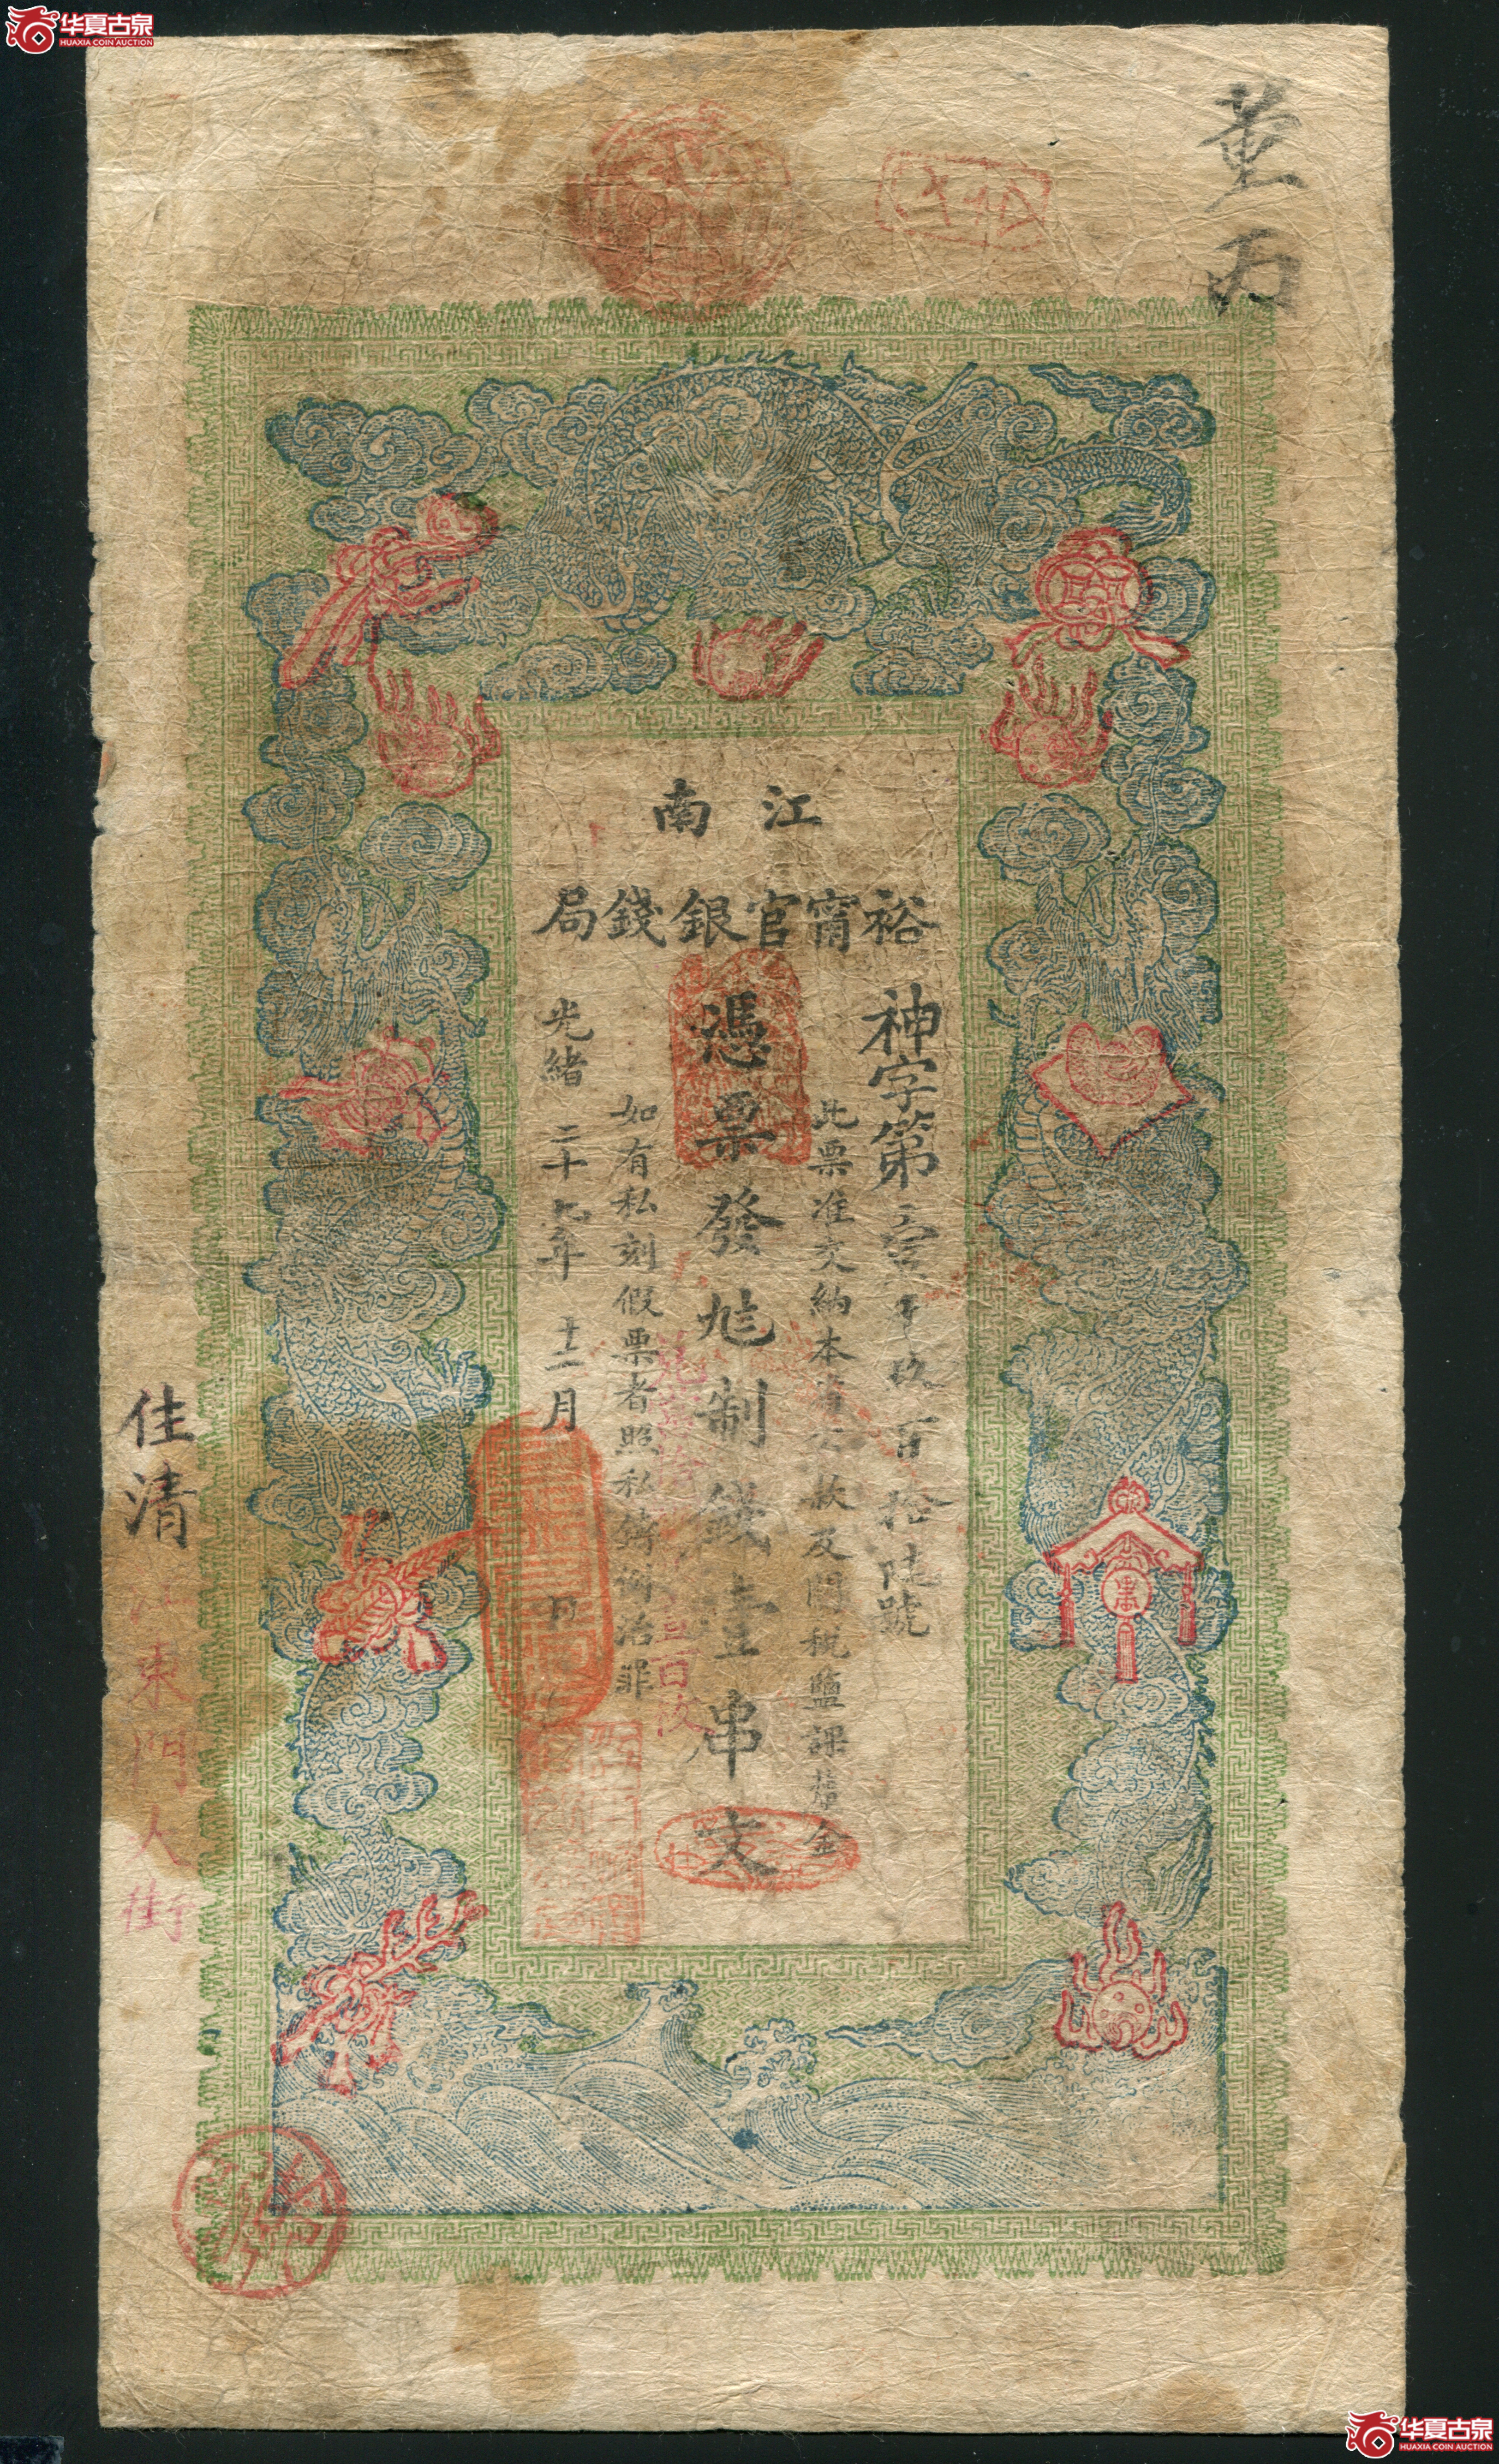 华夏古泉
HUAXIA COIN AUCTION
董丙
江南
裕甯官銀錢局
神字第
百拾陸號
此票准交納本省公款及關稅鹽課釐金
憑票發足制錢壹串文
如有私刻假票者照私鑄例治罪
光緒二十七年十二月 日
佳清
東門大街
华夏古泉
HUAXIA COIN AUCTION